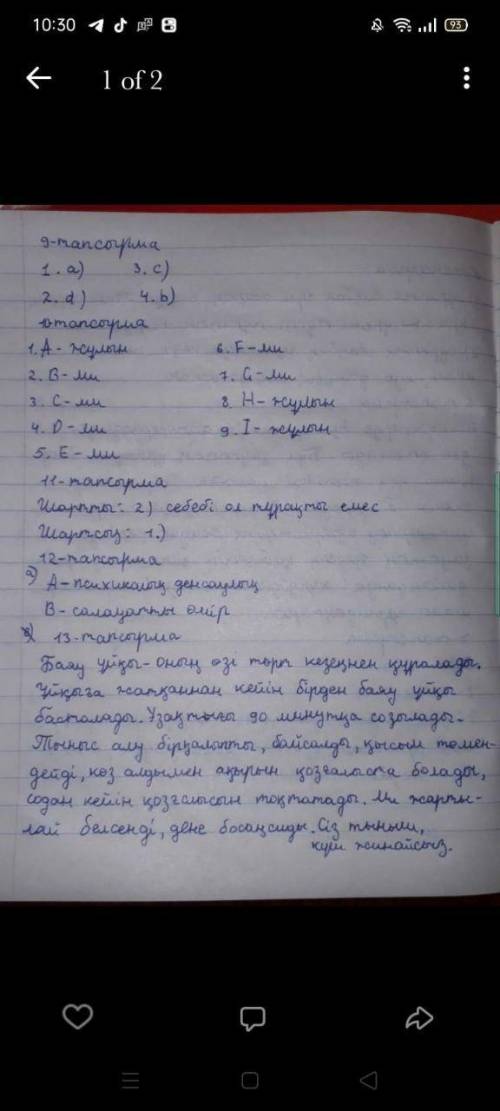 10:30
93
1 of 2
9-тапсырма
1. a) 3. c)
2. d) 4. b)
10-тапсырма
1. A - жұлын 6. F - ми
2. B - ми 7. G - ми
3. C - ми 8. H - жұлын
4. D - ми 9. I - жұлын
5. E - ми
11-тапсырма
Шартты: 2) себебі ол тұрақты емес
Шартсыз: 1.)
12-тапсырма
а) А - психикалық денсаулық
В - салауатты өмір
13-тапсырма
Баяу ұйқы - оның өзі төрт кезеңнен құралады.
Ұйқыға жатқаннан кейін бірден баяу ұйқы
басталады. Ұзақтығы 90 минутқа созылады.
Тыныс алу бірқалыпты, байсалды, қысым төмен-
дейді, көз алдымен ақырын қозғалыста болады,
содан кейін қозғалысын тоқтатады. Ми жарты-
лай белсенді, дене босаңсиды. Сіз тыныш,
күш жинайсыз.